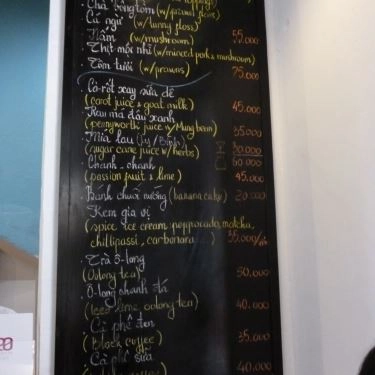 Chà bông tôm (w/
Cá ngừ (w/tunny floss)
Nấm (w/mushroom) 55.000
Thịt mộc nhĩ (w/minced pork & mushroom)
Tôm tươi (w/prawns) 75.000
Cà-rốt xay sữa dê
(carot juice & goat milk) 45.000
Rau má đậu xanh
(pennyworth juice w/Mung bean) 35.000
Mía lau
(sugar cane juice w/herbs) 30.000
Chanh-chanh 60.000
(passion fruit & lime) 45.000
Bánh chuối nướng (banana cake) 20.000
Kem gia vị
(spice ice cream poppocado, matcha,
chillipassi, carbonara...) 35.000
Trà ô-long
(Oolong tea) 50.000
Ô-long chanh đá
(Iced lime oolong tea) 40.000
Cà phê đen
(Black coffee) 35.000
Cà phê sữa
40.000